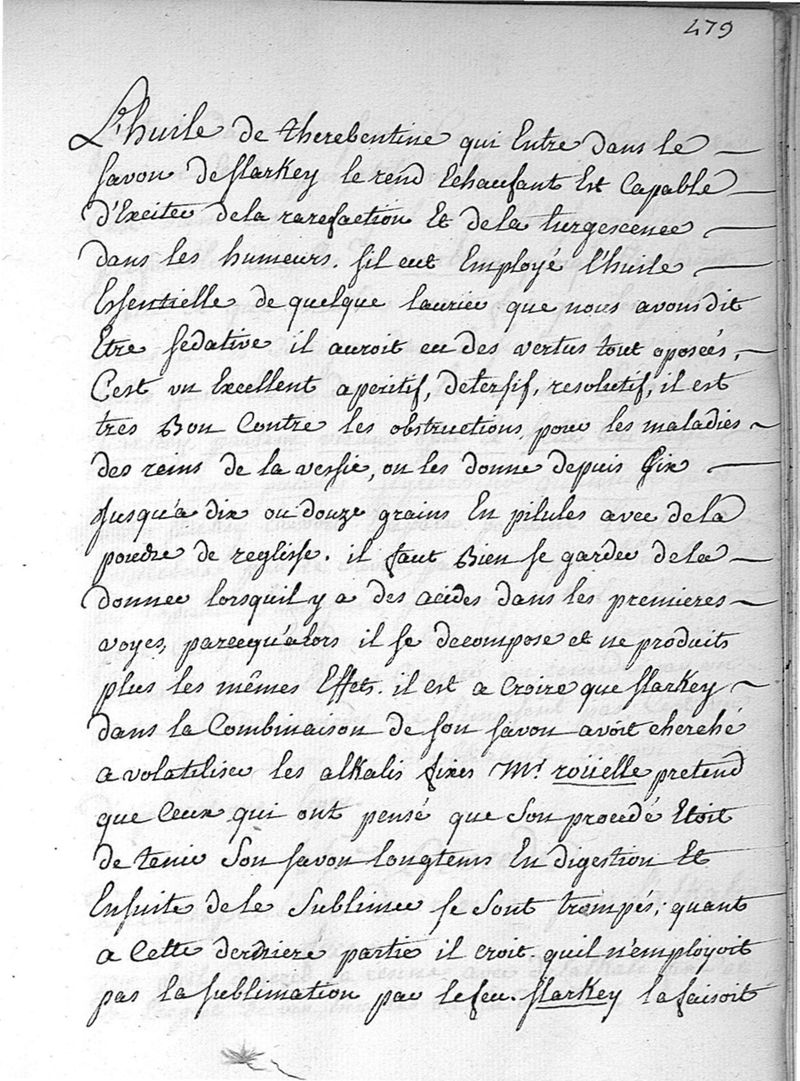 479
L'huile de therebentine qui Entre dans le
savon de starkey le rend Echaufant Est Capable
d'Exciter de la rarefaction Et de la turgescence
dans les humeurs. s'il eut Employé l'huile
Essentielle de quelque laurier que nous avons dit
Etre sedative il auroit eu des vertus tout oposées,
C'est un Excellent aperitif, detersif, resolutif, il est
tres Bon Contre les obstructions pour les maladies
des reins de la vessie, on les donne depuis six
Jusqu'a dix ou douze grains En pilules avec de la
poudre de reglisse. il faut Bien se garder de la
donner lorsquil y a des acides dans les premieres
voyes, parcequ'alors il se decompose et ne produits
plus les mêmes Effets. il est a Croire que starkey
dans la Combinaison de son savon avoit cherché
a volatiliser les alkalis fixes Mr. roüelle pretend
que Ceux qui ont pensé que Son procedé Etoit
de tenir Son savon longtems En digestion Et
Ensuite de le Sublimer se Sont trompés; quant
a Cette derdriere partie il croit. quil n'employoit
pas la sublimation par le feu. starkey la faisoit